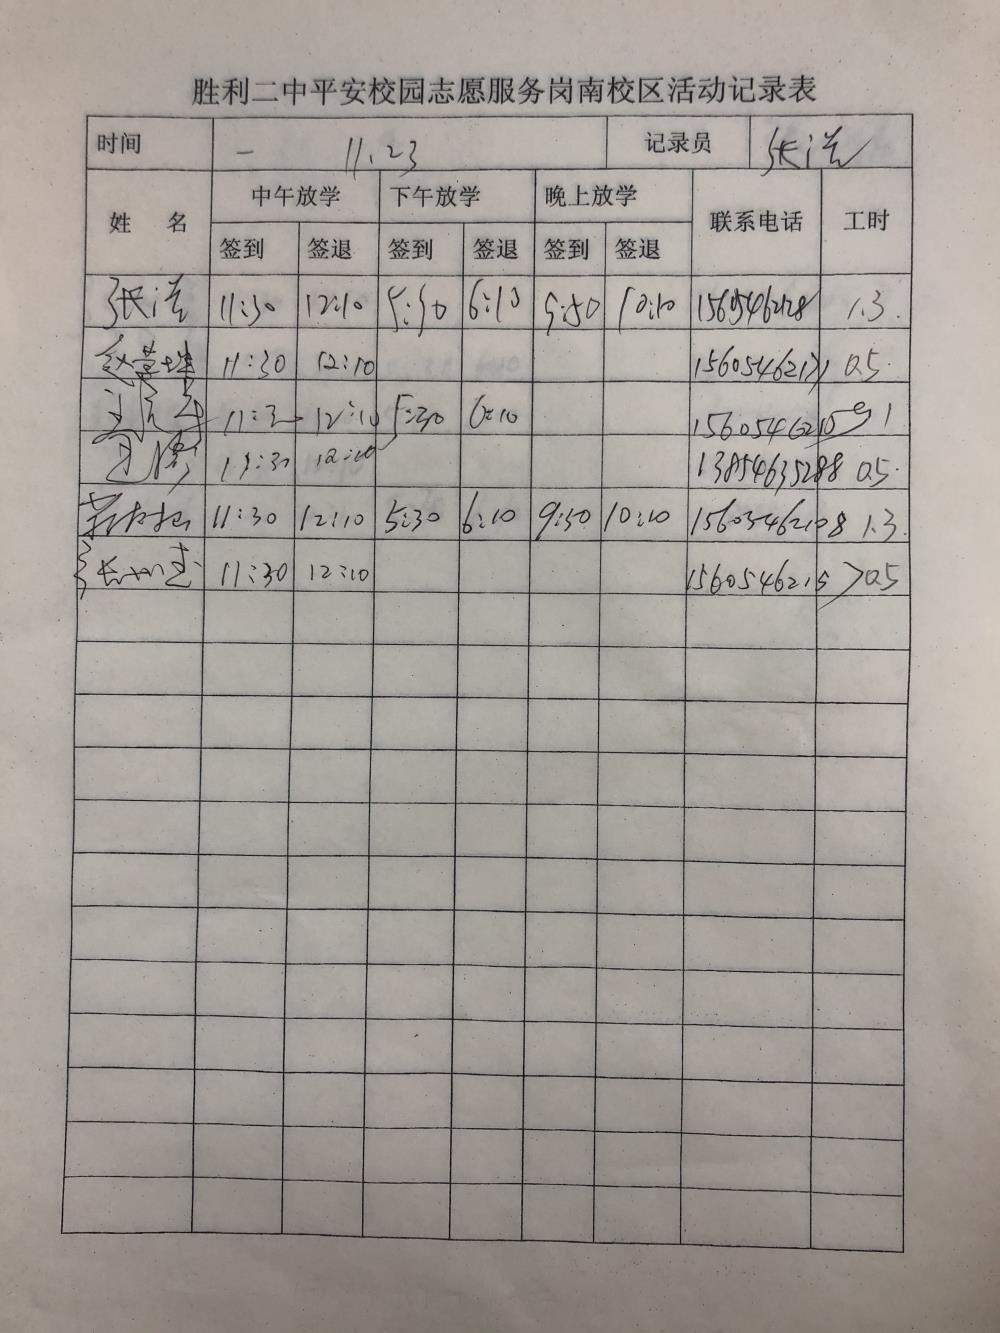 胜利二中平安校园志愿服务岗南校区活动记录表
时间 一 11.23 记录员 张
姓 名 中午放学 下午放学 晚上放学 联系电话 工时
签到 签退 签到 签退 签到 签退
张 11:30 12:10 5:30 6:10 9:50 10:10 1.3.
赵营 11:30 12:10 0.5.
12:10 5:30 6:10 1
12:10 13854635288 0.5.
11:30 12:10 5:30 6:10 9:50 10:10 15605462108 1.3.
张 11:30 12:10 0.5